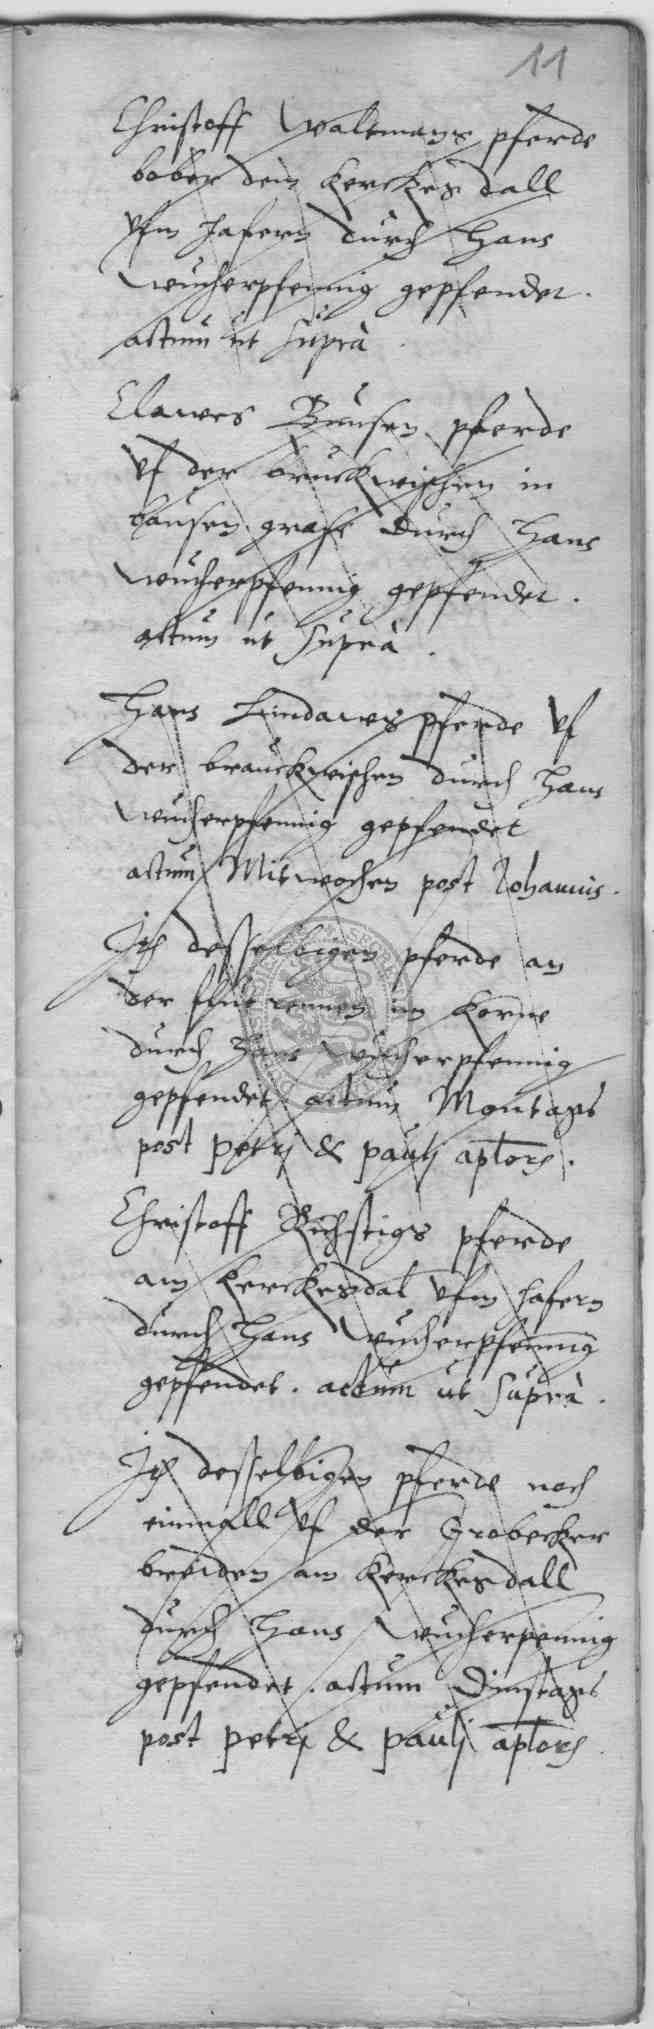 11
Christoff Waltmans pferde
bober dem Kerckes dall
vfm hafern durch Hans
Wucherpfennig gepfendet.
actum ut suprà.
Clawes Bunsen pferde
vf der bruckwischen in
hausen grase durch Hans
Wucherpfennig gepfendet.
actum ut suprà.
Hans Lindaws pferde vf
der brauckwischen durch Hans
Wucherpfennig gepfendet
actum Mitwochen post Johannis.
Jt desselbigen pferde an
der flut rennen im Korne
durch Hans Wucherpfennig
gepfendet actum Montags
post petrj & paulj aplor.
Christoff Richstigs pferde
am Kerckesdal vfm hafern
durch Hans Wucherpfennig
gepfendet. actum ut suprà.
Jt desselbigen pferde noch
einmall vf der Grobecker
breiden am Kerckesdall
durch Hans Wucherpennig
gepfendet. actum Dinstags
post petrj & paulj aplor